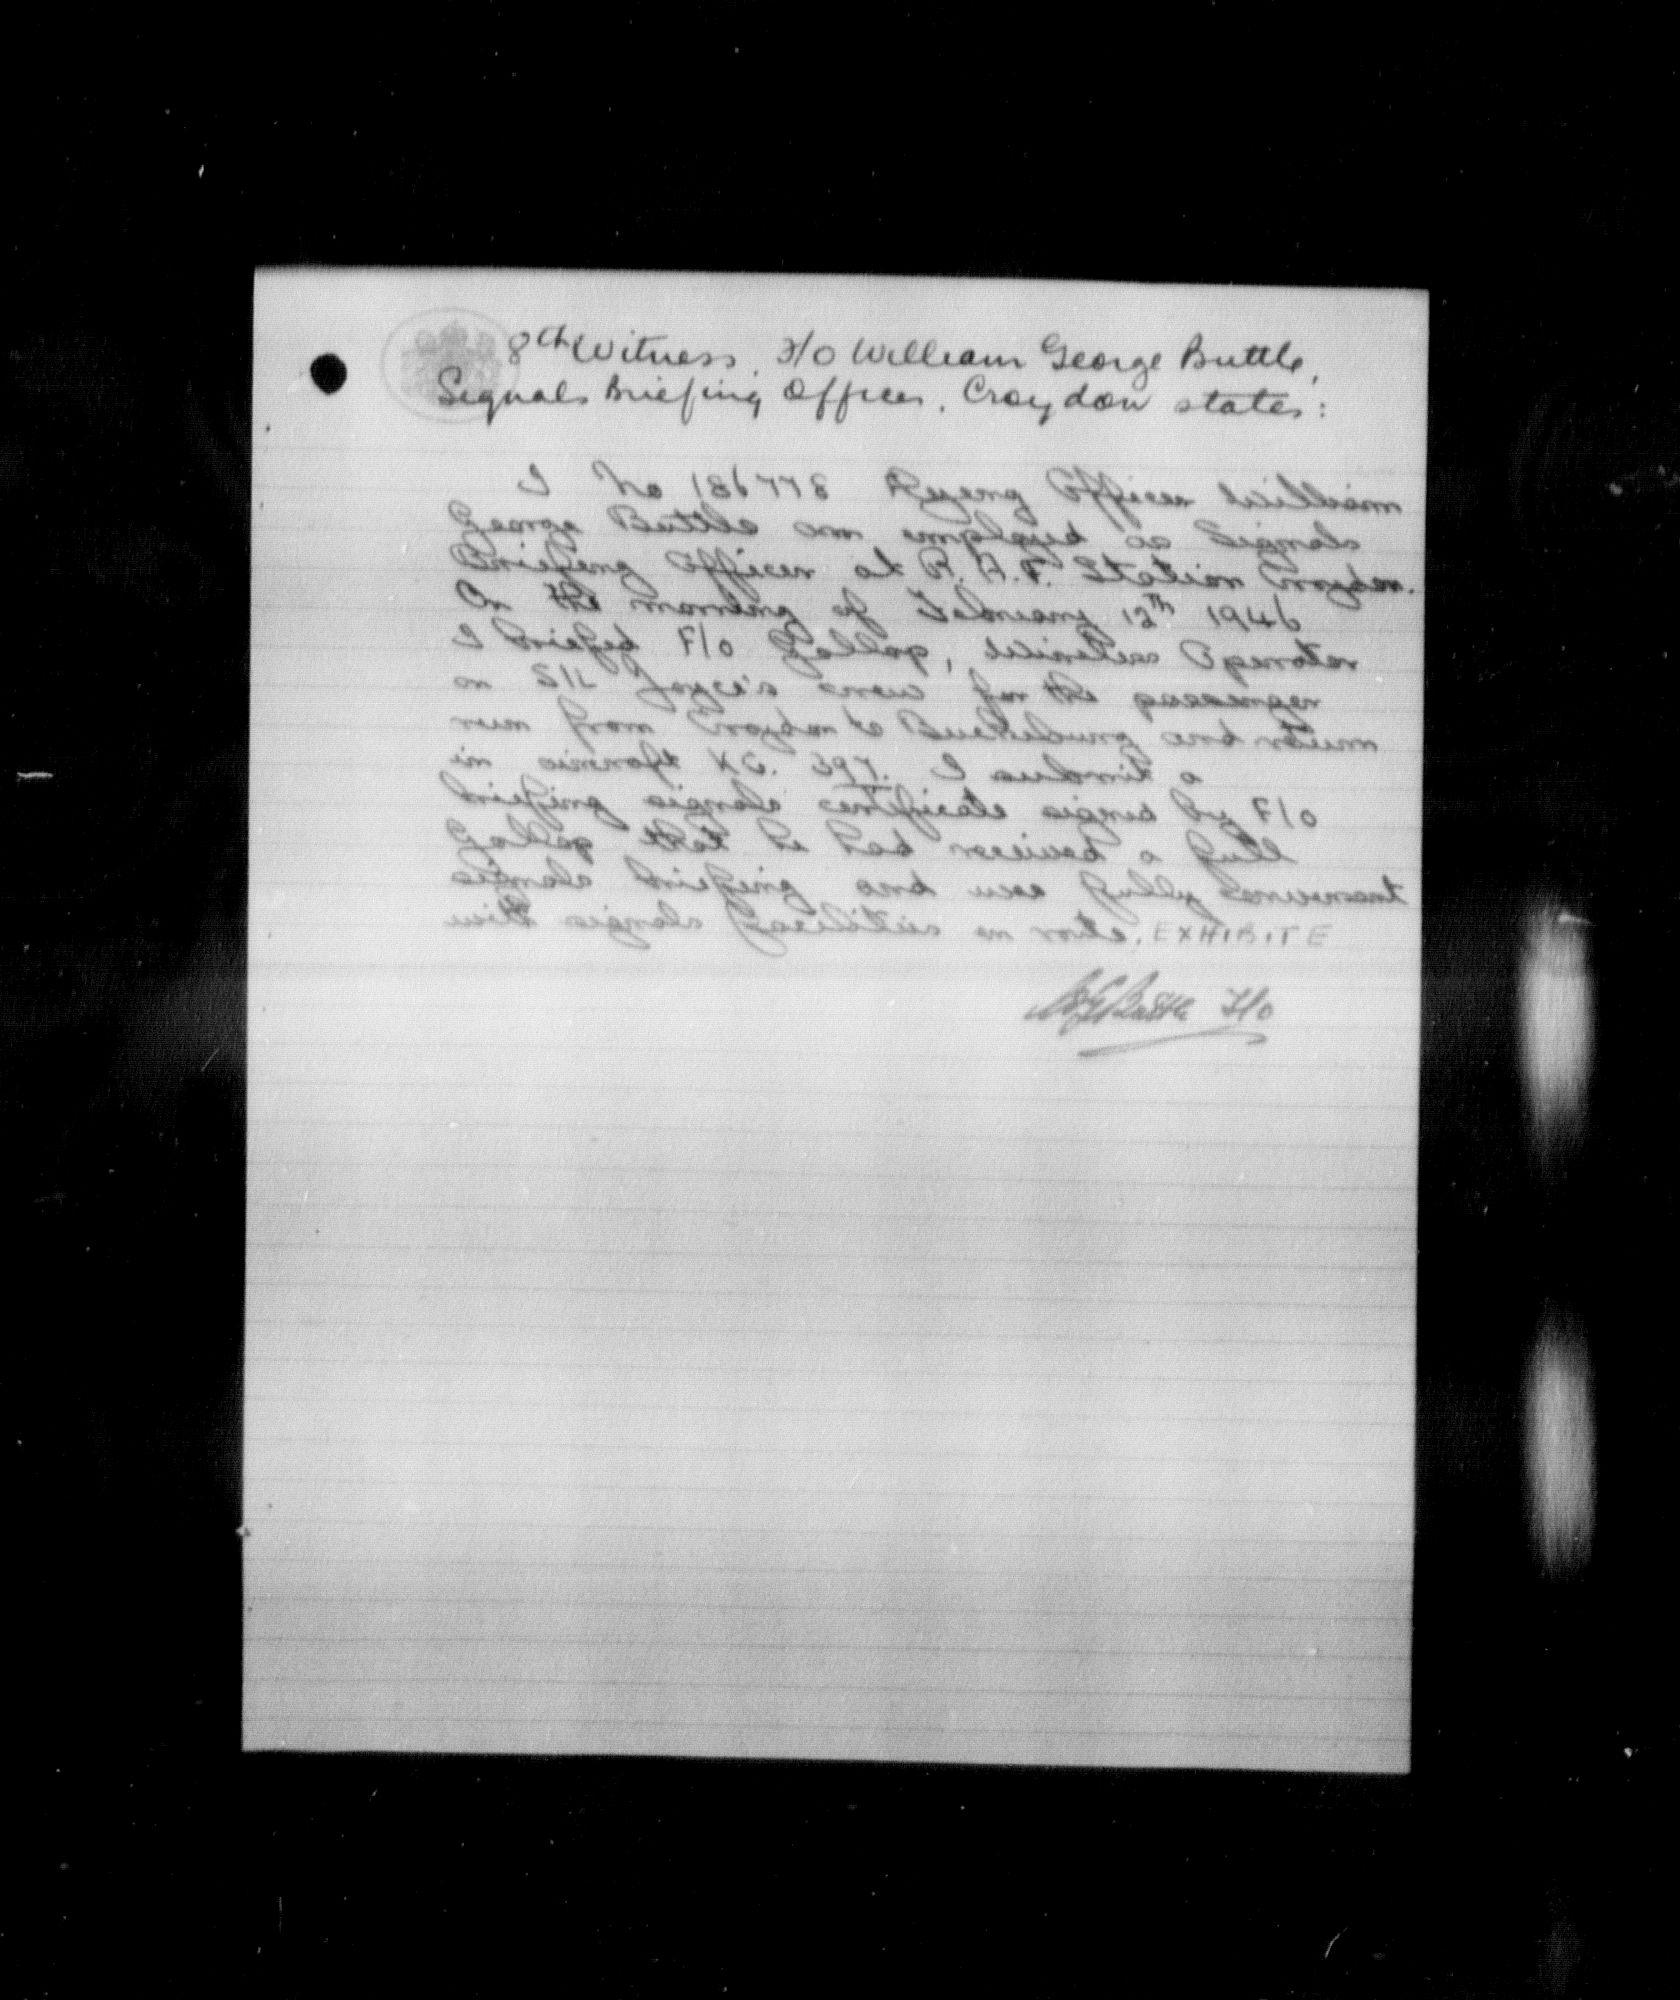 8th Witness. F/O William George Buttle,
Signals Briefing Officer, Croydon states:
I No Flying Officer William
George Buttle am employed as Signals
Briefing Officer at R.A.F. Station Croydon.
On the morning of February 1946
I briefed F/O Gallop, Wireless Operator
crew for the passenger
run from Croydon to Buckeburg and return
in aircraft I a
briefing signals certificate signed by F/O
Gallop that he had received a full
signals briefing and was fully conversant
with signals facilities on route. EXHIBIT E
WG Buttle F/O